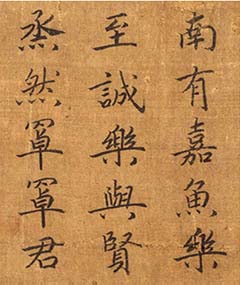 南有嘉魚樂
至誠樂與賢
烝然罩罩君